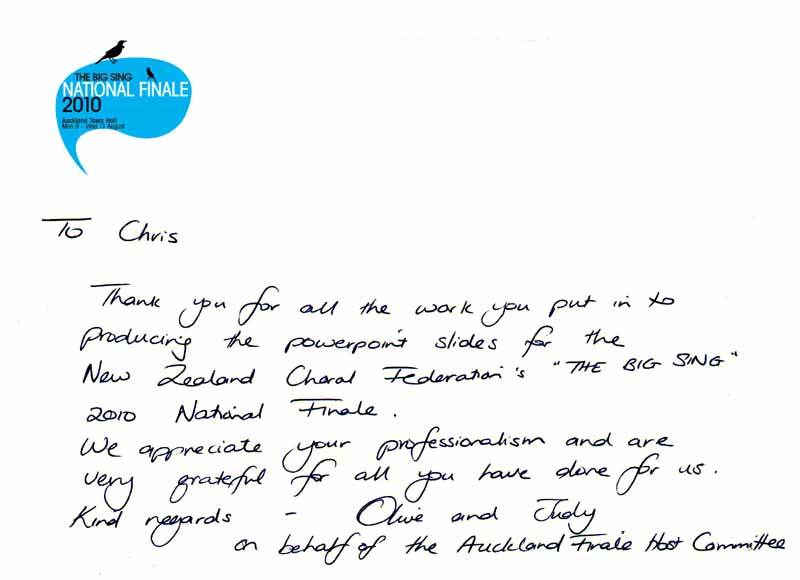 THE BIG SING
NATIONAL FINALE
2010
Auckland Town Hall
Mon 9 - Wed 11 August
To Chris
Thank you for all the work you put in to
producing the powerpoint slides for the
New Zealand Choral Federation's "THE BIG SING"
2010 National Finale.
We appreciate your professionalism and are
very grateful for all you have done for us.
Kind regards - Olive and Judy
on behalf of the Auckland Finale Host Committee